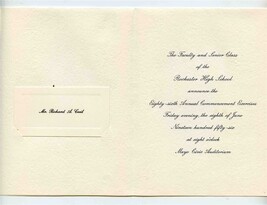 Mr. Richard A. Cool
The Faculty and Senior Class
of the
Rochester High School
announce the
Eighty-sixth Annual Commencement Exercises
Friday evening the eighth of June
Nineteen hundred fifty-six
at eight o'clock
Mayo Civic Auditorium